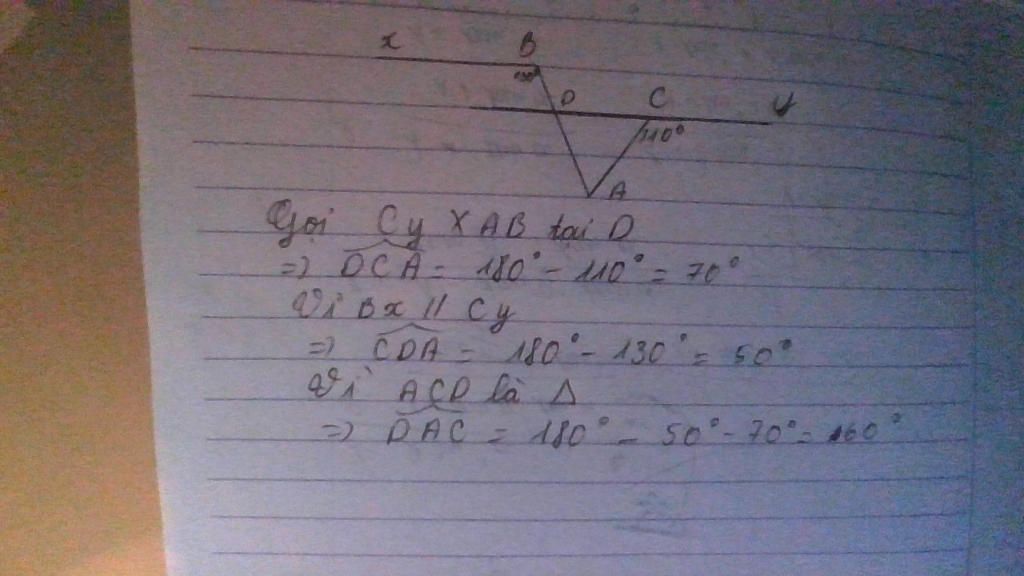 x B
130°
D C y
110°
A
Gọi Cy X AB tại D
=> DCA = 180° - 110° = 70°
Vì Bx // Cy
=> CDA = 180° - 130° = 50°
Vì ACD là Δ
=> DAC = 180° - 50° - 70° = 60°